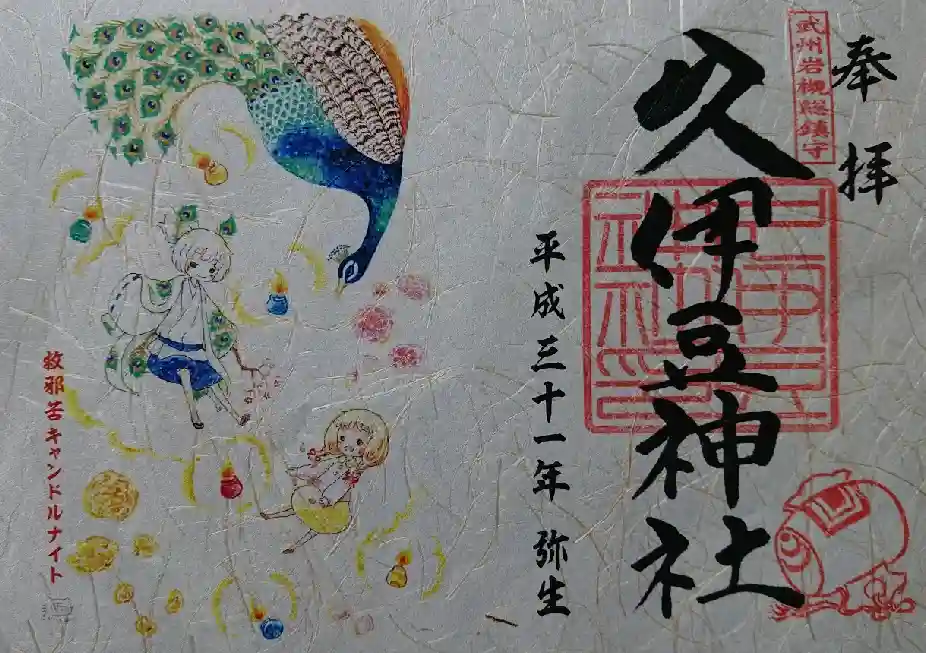 奉拝
武州岩槻総鎮守
久伊豆神社
平成三十一年 弥生
救邪苦キャンドルナイト